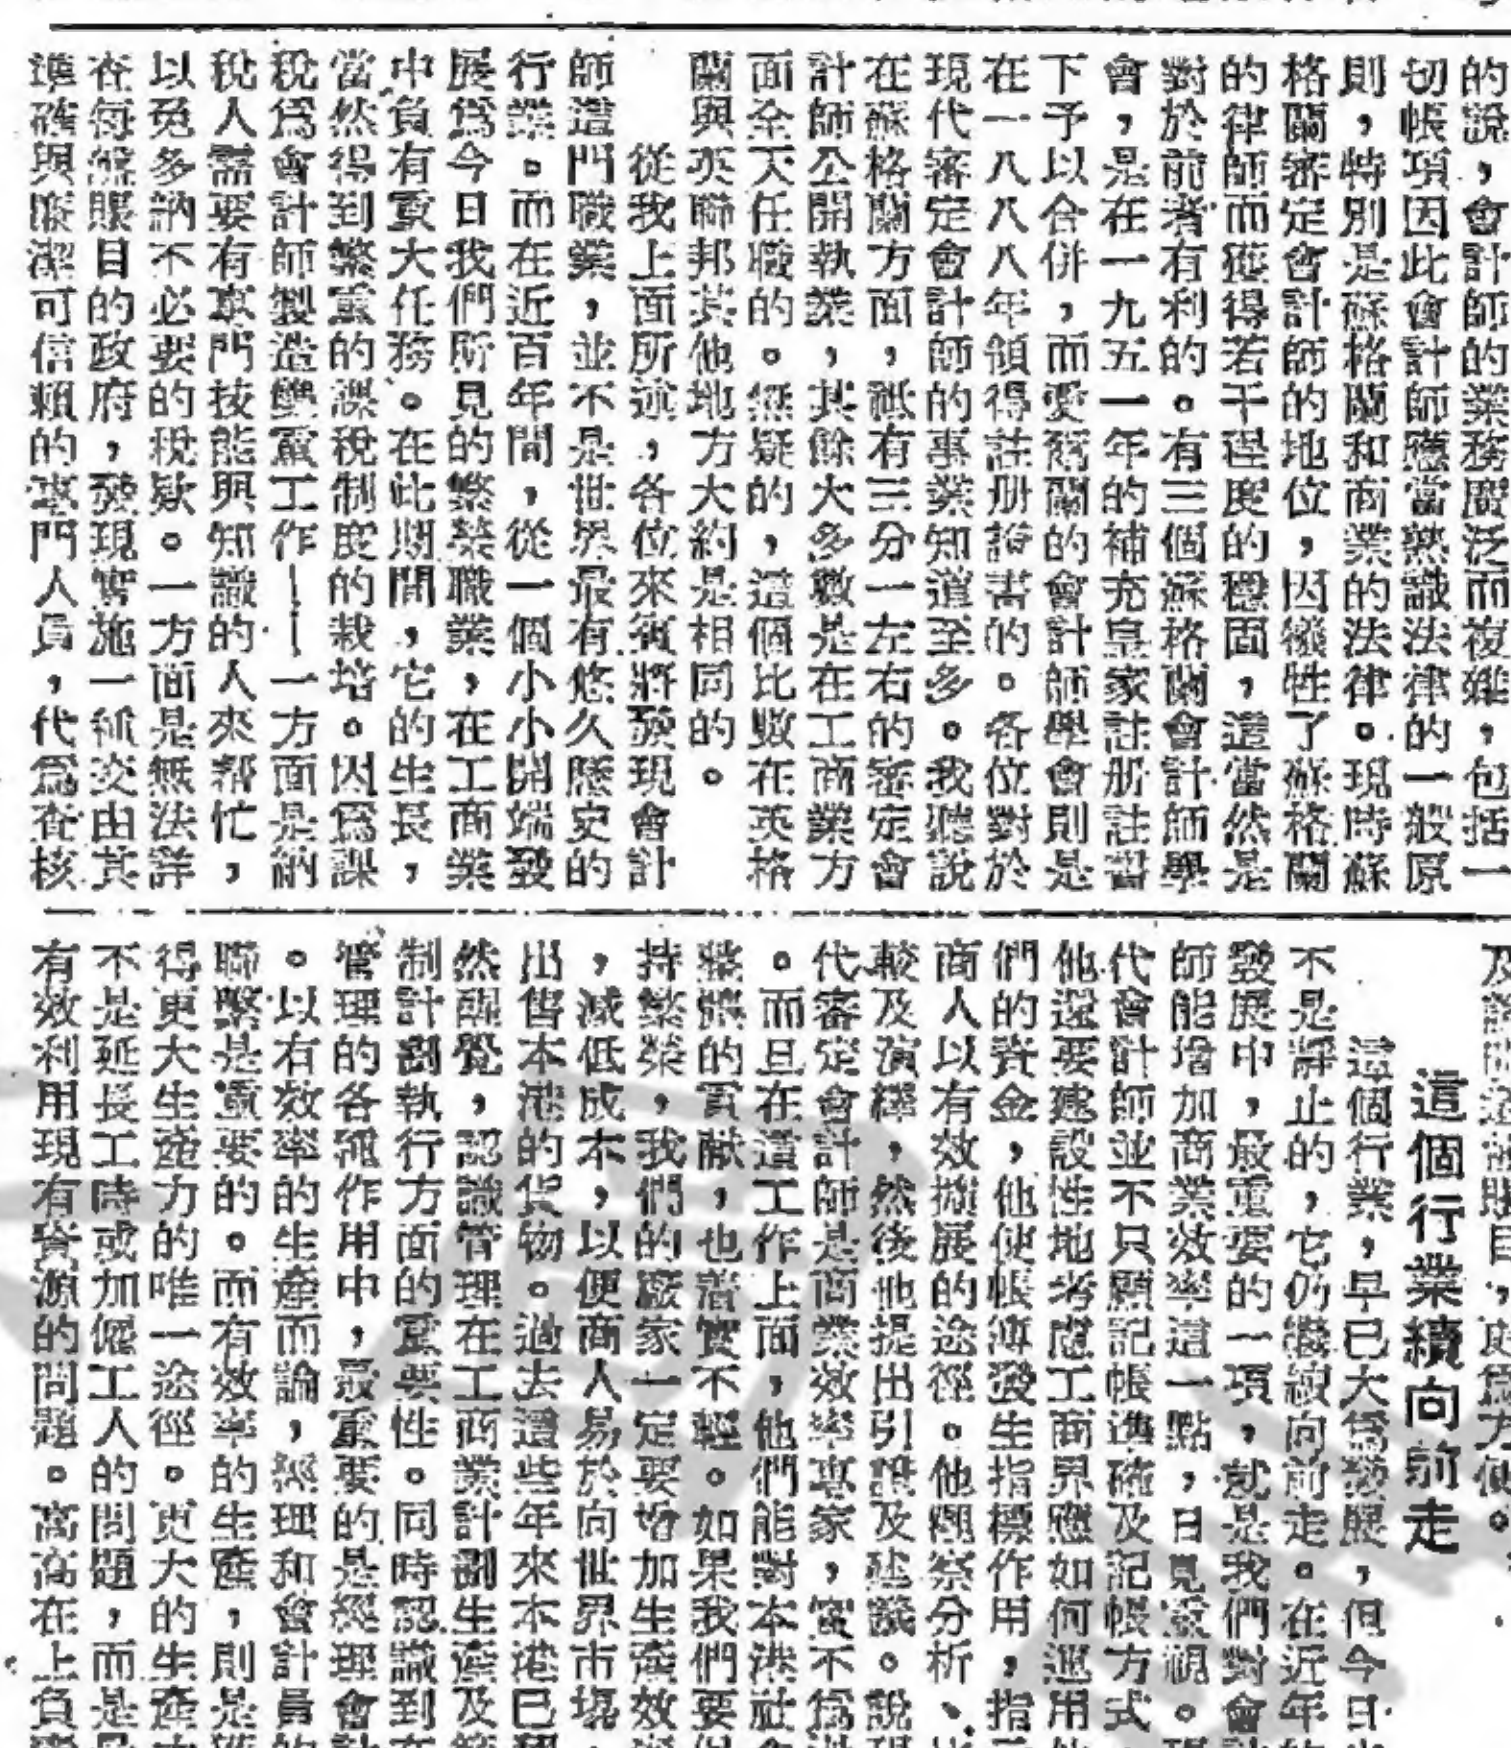 的說，會計師的業務廣泛而複雜，包括一
切帳項因此會計師應當熟識法律的一般原
則，特別是蘇格蘭和商業的法律。現時蘇
格蘭審定會計師的地位，因犧牲了蘇格蘭
的律師而獲得若干程度的穩固，這當然是
對於前者有利的。有三個蘇格蘭會計師學
會，是在一九五一年的補充皇家註册註冊
下予以合併，而愛爾蘭的會計師學會則是
在一八八八年領得註册證書的。各位對於
現代審定會計師的事業知道至多。我聽說
在蘇格蘭方面，祗有三分一左右的審定會
計師公開執業，其餘大多數是在工商業方
面全天任職的。無疑的，這個比數在英格
蘭與英聯邦其他地方大約是相同的。
從我上面所述，各位來賓將發現會計
師這門職業，並不是世界最有悠久歷史的
行業。而在近百年間，從一個小小開端發
展爲今日我們所見的繁榮職業，在工商業
中負有重大任務。在此期間，它的生長，
當然得到繁重的課稅制度的栽培。因爲課
稅爲會計師製造雙重工作——一方面是納
稅人需要有專門技能與知識的人來帮忙，
以免多納不必要的稅欵。一方面是無法詳
查每盤賬目的政府，發現實施一種交由其
準確與廉潔可信賴的專門人員，代爲查核
這個行業續向前走
這個行業，早已大爲發展，但今日
不是靜止的，它仍繼續向前走。在近年
發展中，最重要的一項，就是我們對會
師能增加商業效率這一點，日見重視。
代會計師並不只顧記帳準確及記帳方式
他還要建設性地考慮工商界應如何運用
們的資金，他使帳簿發生指標作用，指
商人以有效擴展的途徑。他觀察分析、
較及演繹，然後他提出引證及建議。說
代審定會計師是商業效率專家，實不爲
。而且在這工作上面，他們能對本港社
業務的貢献，也着實不輕。如果我們要
持繁榮，我們的廠家一定要增加生產效
，減低成本，以便商人易於向世界市塲
出售本港的貨物。過去這些年來本港已
然醒覺，認識管理在工商業計劃生產及
制計劃執行方面的重要性。同時認識到
管理的各種作用中，最重要的是經理會
。以有效率的生產而論，經理和會計員
聯繫是重要的。而有效率的生產，則是
得更大生產力的唯一途徑。更大的生產
不是延長工時或加僱工人的問題，而是
有效利用現有資源的問題。高高在上負